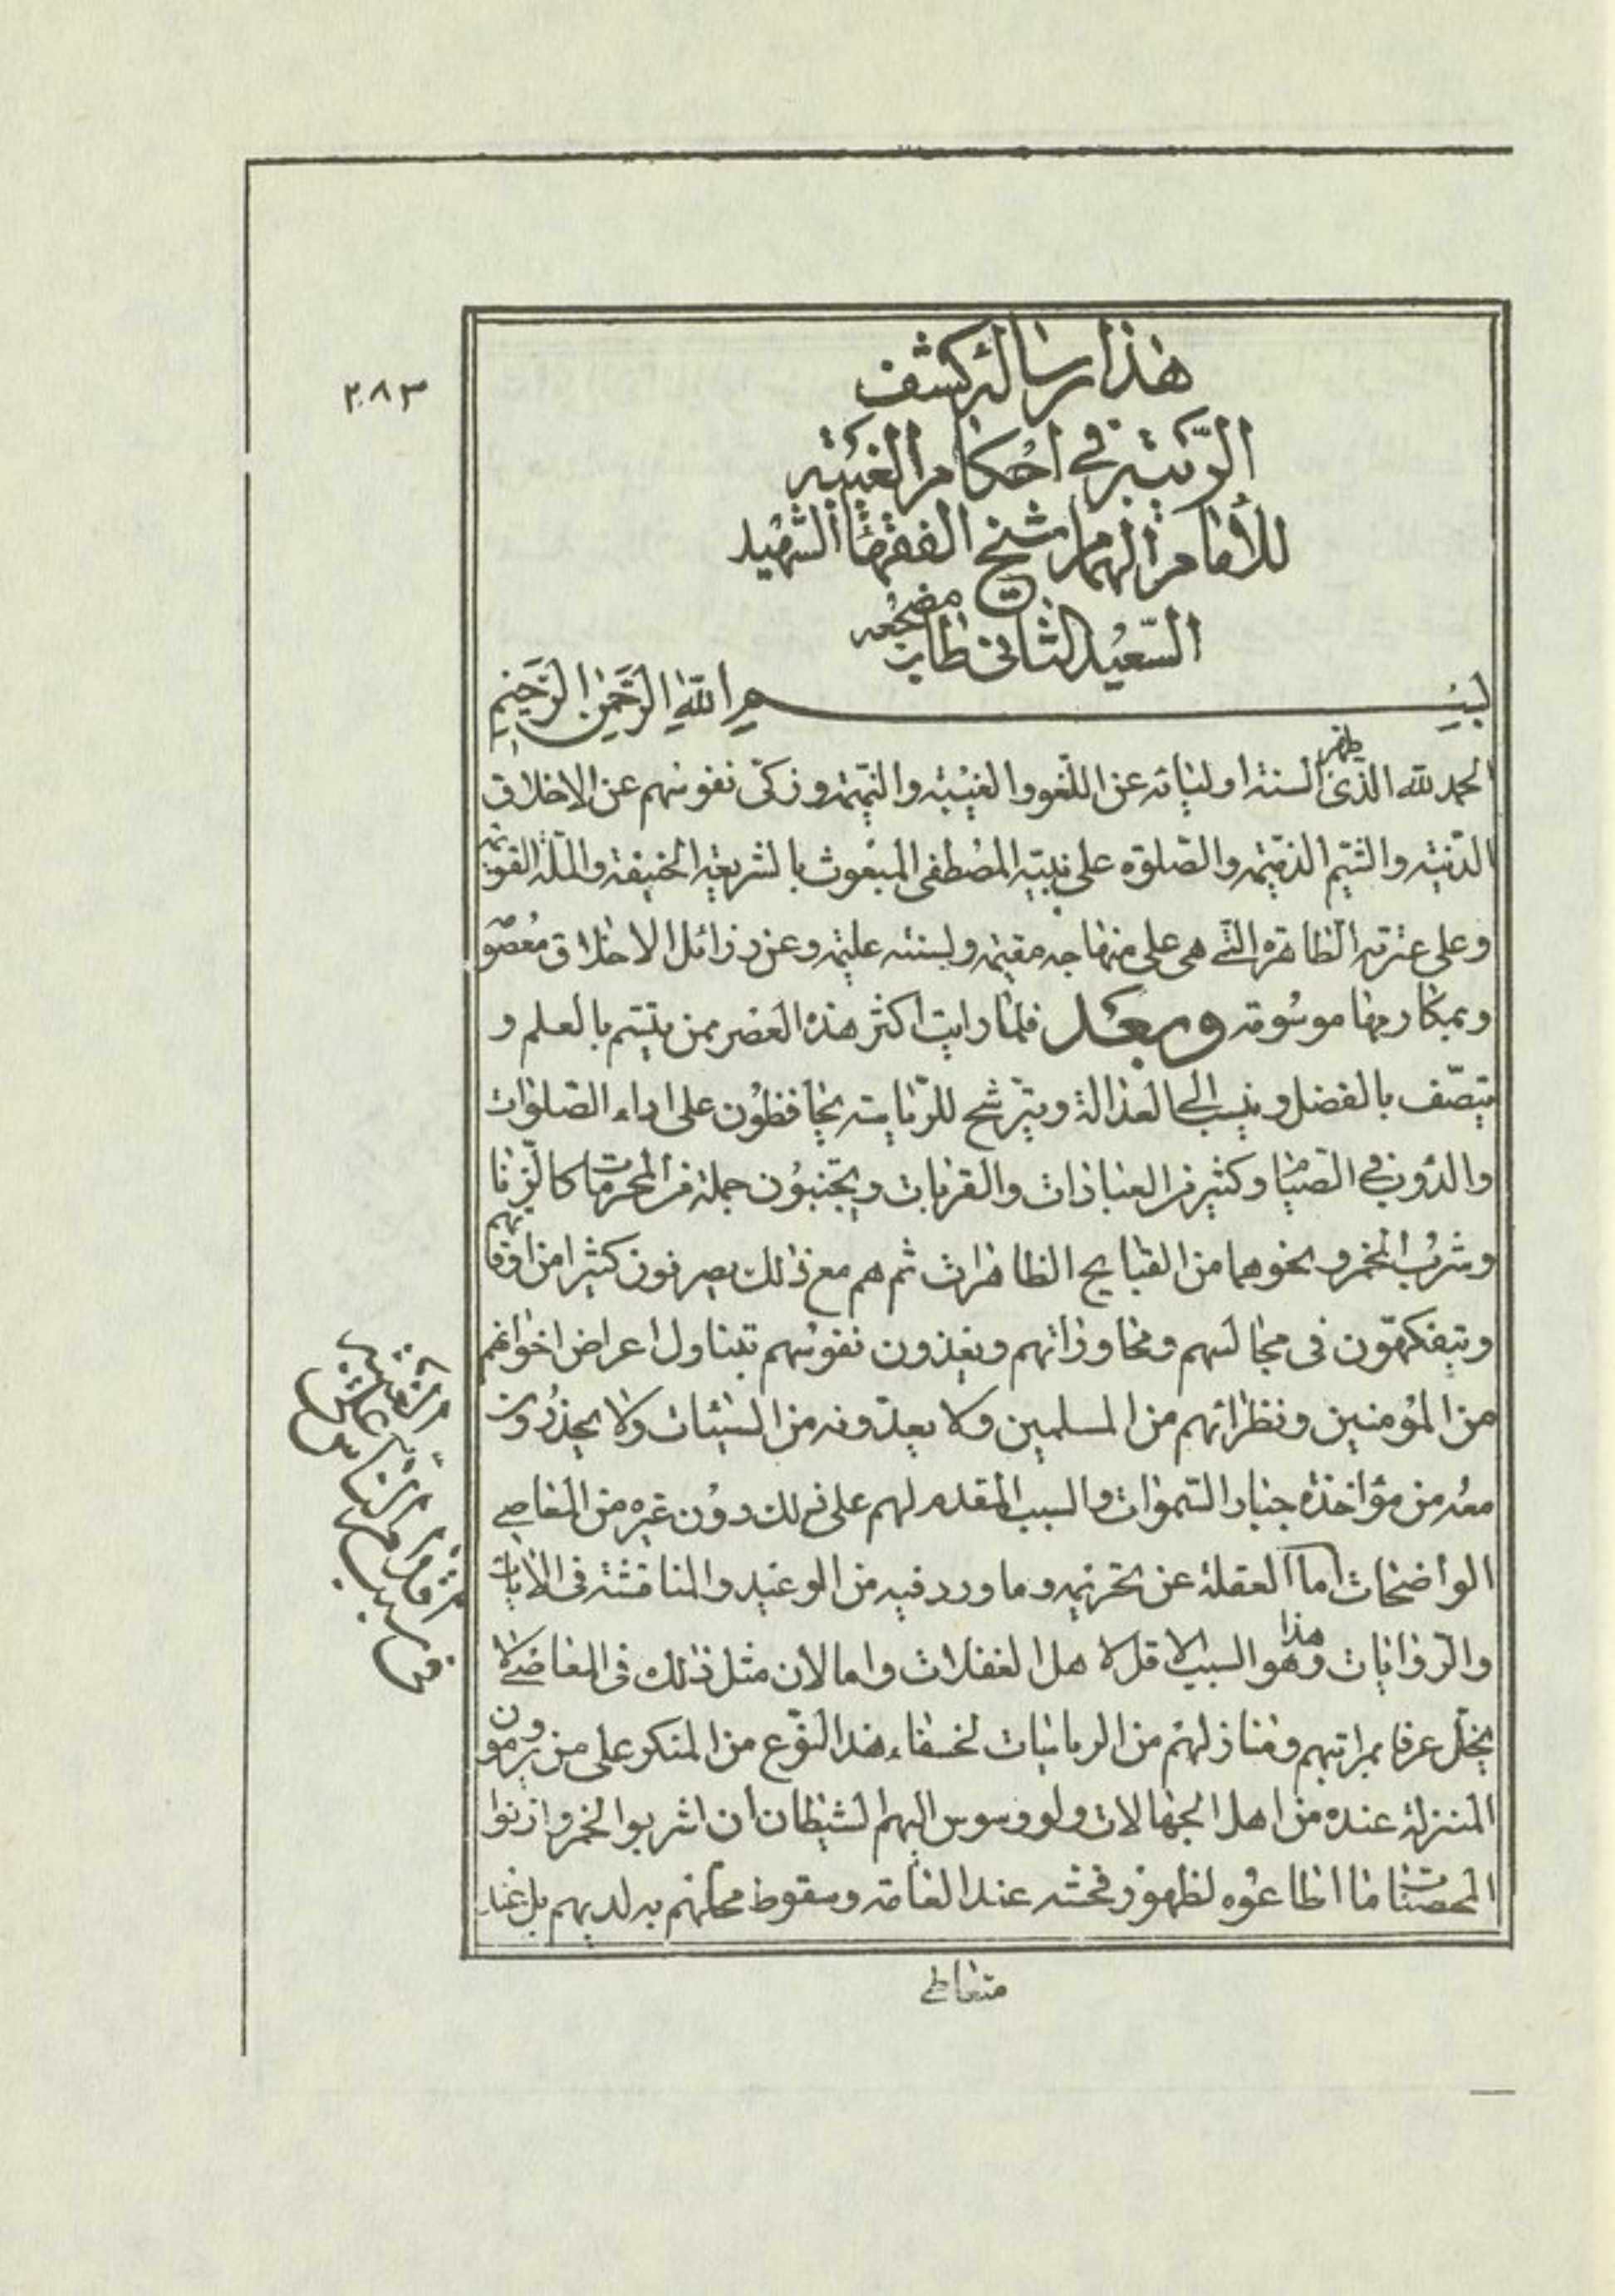 ٢٨٣
هذا رسالة كشف
الريبة في احكام الغيبة
للامام الهمام شيخ الفقهاء الشهيد
السعيد الثاني طاب مضجعه
بسم الله الرحمن الرحيم
الحمد لله الذى طهر السنة اوليائه عن اللغو والغيبة والنميمة وزكى نفوسهم عن الاخلاق
الدنية والشيم الذميمة والصلوة على نبيه المصطفى المبعوث بالشريعة الحنيفة والملة القويمة
وعلى عترته الطاهرة التي هى على منهاجه مقيمة ولسنته عليمة وعن رذائل الاخلاق معصومة
وبمكارمها موسومة وبعد فلما رايت اكثر هذه العصر ممن يتسم بالعلم و
يتصف بالفضل وينسب الى العدالة ويترشح للرياسة يحافظون على اداء الصلوات
والدؤب في الصيام وكثير من العبادات والقربات ويجتنبون جملة من المحرمات كالزنا
وشرب الخمر ونحوهما من القبايح الظاهرات ثم هم مع ذلك يصرفون كثيرا من اوقاتهم
ويتفكهون في مجالسهم ومحاوراتهم ويغذون نفوسهم بتناول اعراض اخوانهم
من المؤمنين ونظرائهم من المسلمين ولا يعدونه من السيئات ولا يحذرون
معه من مؤاخذة جبار السموات والسبب المقدم لهم على ذلك دون غيره من المعاصي
الواضحات اما الغفلة عن تحريمه وما ورد فيه من الوعيد والمناقشة في الايات
والروايات وهذا هو السبب الاقل لاهل الغفلات واما لان مثل ذلك في المعاصي لا
يخل عرفا بمراتبهم ومنازلهم من الرياسات لخفاء هذا النوع من المنكر على من يرومون
المنزلة عنده من اهل الجهالات ولو وسوس اليهم الشيطان ان اشربوا الخمر وازنوا
المحصنات ما اطاعوه لظهور فحشه عند العامة وسقوط محلهم به لديهم بل عند
متعاطي